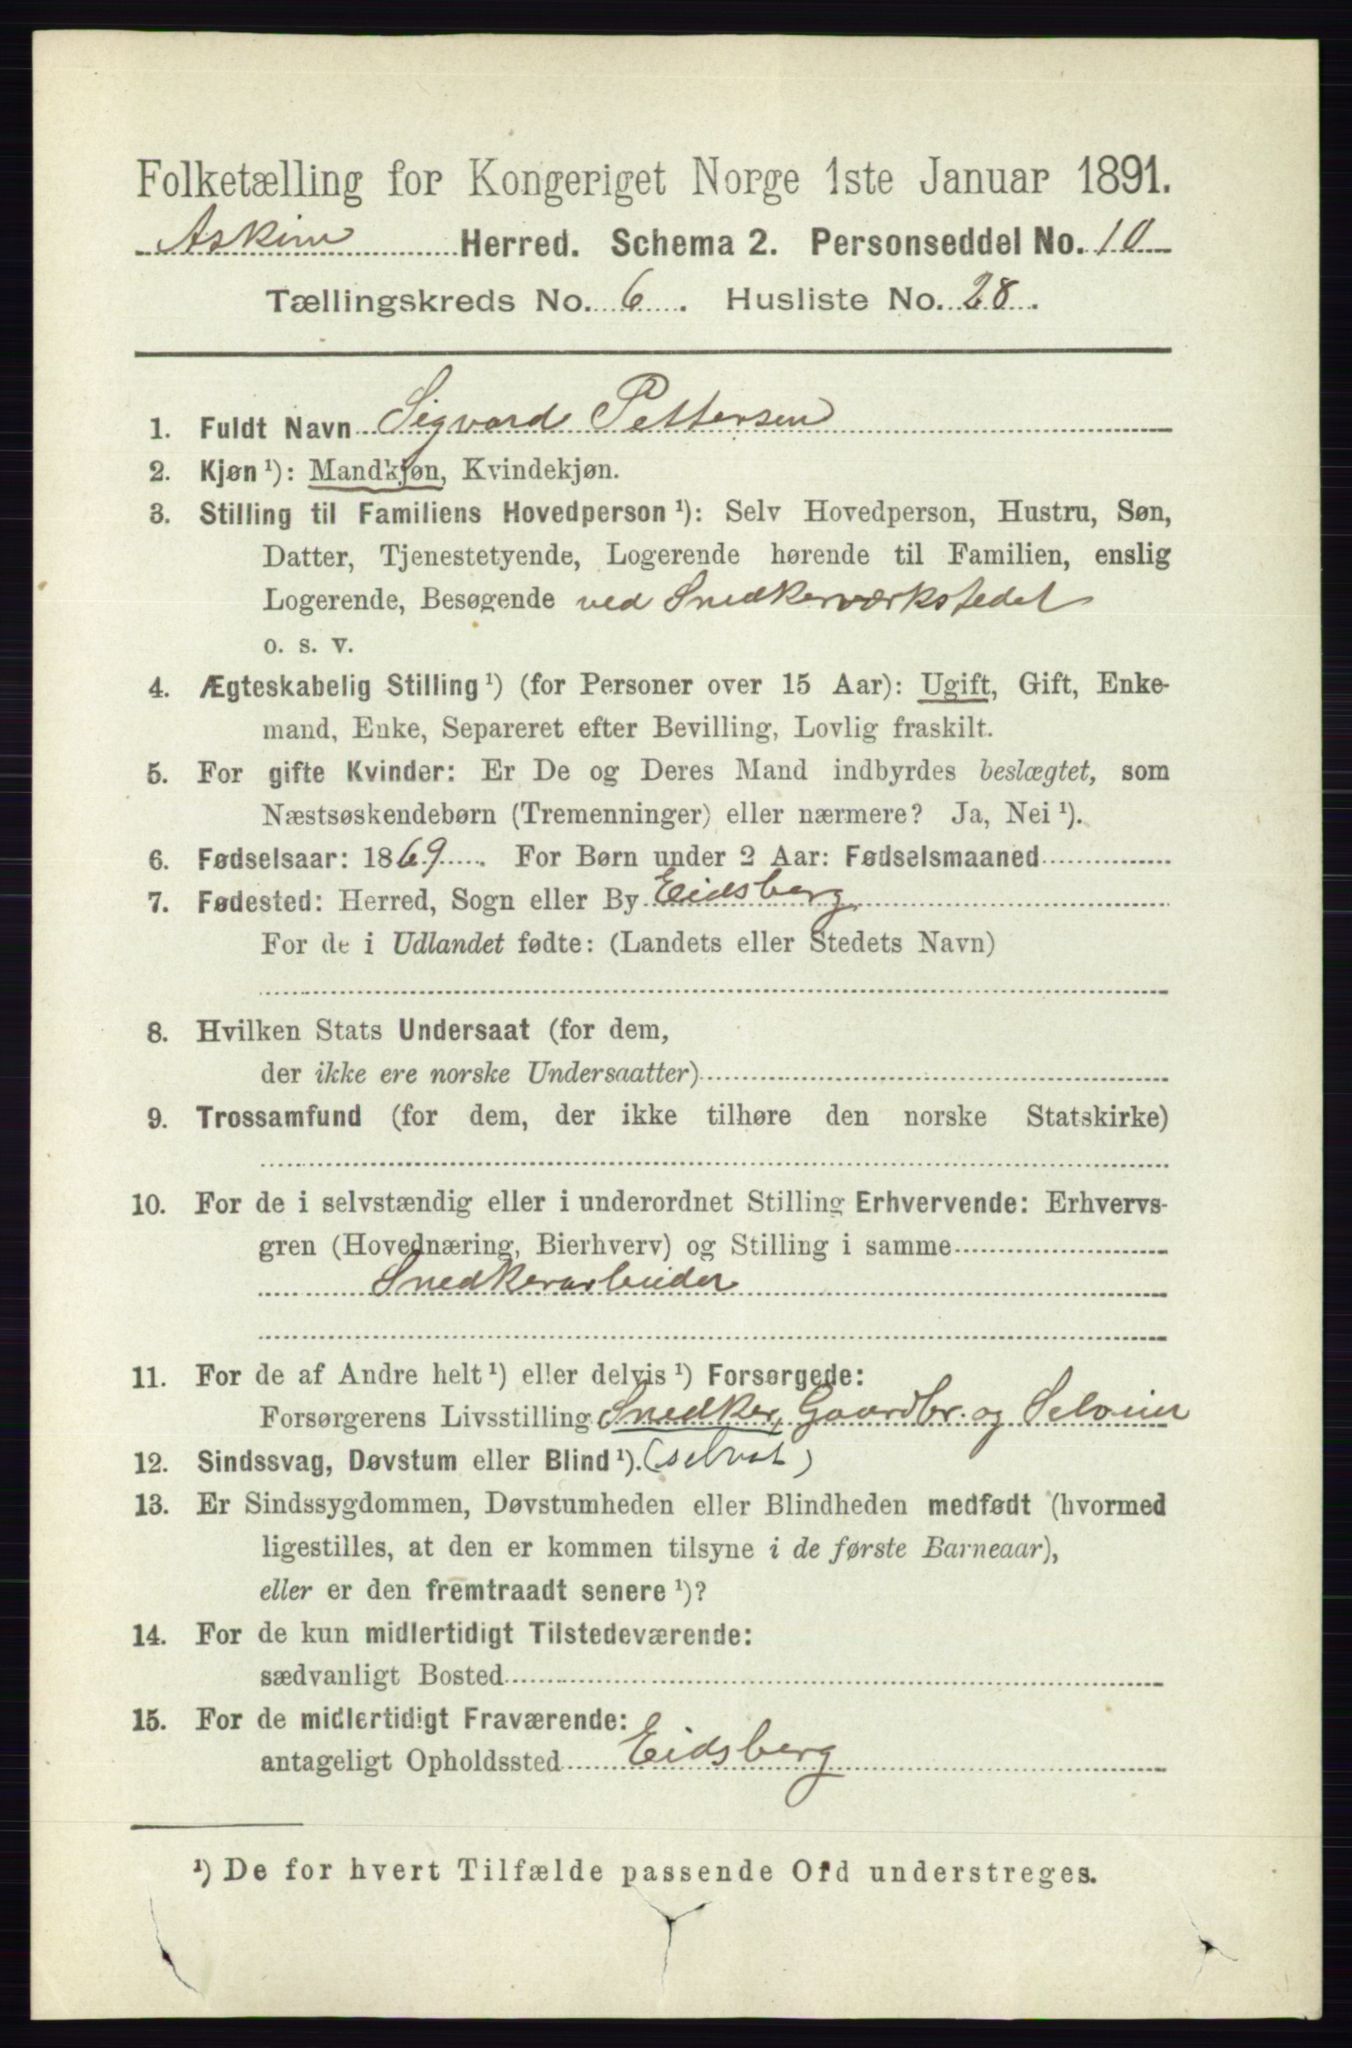 Folketælling for Kongeriget Norge 1ste Januar 1891.
Askim Herred. Schema 2. Personseddel No. 10
Tællingskreds No. 6. Husliste No. 28.
1. Fuldt Navn Sigvard Pettersen
2. Kjøn ¹): Mandkjøn, Kvindekjøn.
3. Stilling til Familiens Hovedperson ¹): Selv Hovedperson, Hustru, Søn,
Datter, Tjenestetyende, Logerende hørende til Familien, enslig
Logerende, Besøgende ved Snedkerværkstedet
o. s. v.
4. Ægteskabelig Stilling ¹) (for Personer over 15 Aar): Ugift, Gift, Enke-
mand, Enke, Separeret efter Bevilling, Lovlig fraskilt.
5. For gifte Kvinder: Er De og Deres Mand indbyrdes beslægtet, som
Næstsøskendebørn (Tremenninger) eller nærmere? Ja, Nei ¹).
6. Fødselsaar: 1869. For Børn under 2 Aar: Fødselsmaaned
7. Fødested: Herred, Sogn eller By Eidsberg
For de i Udlandet fødte: (Landets eller Stedets Navn)
8. Hvilken Stats Undersaat (for dem,
der ikke ere norske Undersaatter)
9. Trossamfund (for dem, der ikke tilhøre den norske Statskirke)
10. For de i selvstændig eller i underordnet Stilling Erhvervende: Erhvervs-
gren (Hovednæring, Bierhverv) og Stilling i samme
Snedkerarbeider
11. For de af Andre helt ¹) eller delvis ¹) Forsørgede:
Forsørgerens Livsstilling Snedker, Gaardbr. og Seloier
12. Sindssvag, Døvstum eller Blind ¹).
13. Er Sindssygdommen, Døvstumheden eller Blindheden medfødt (hvormed
ligestilles, at den er kommen tilsyne i de første Barneaar),
eller er den fremtraadt senere ¹)?
14. For de kun midlertidigt Tilstedeværende:
sædvanligt Bosted
15. For de midlertidigt Fraværende:
antageligt Opholdssted Eidsberg
¹) De for hvert Tilfælde passende Ord understreges.